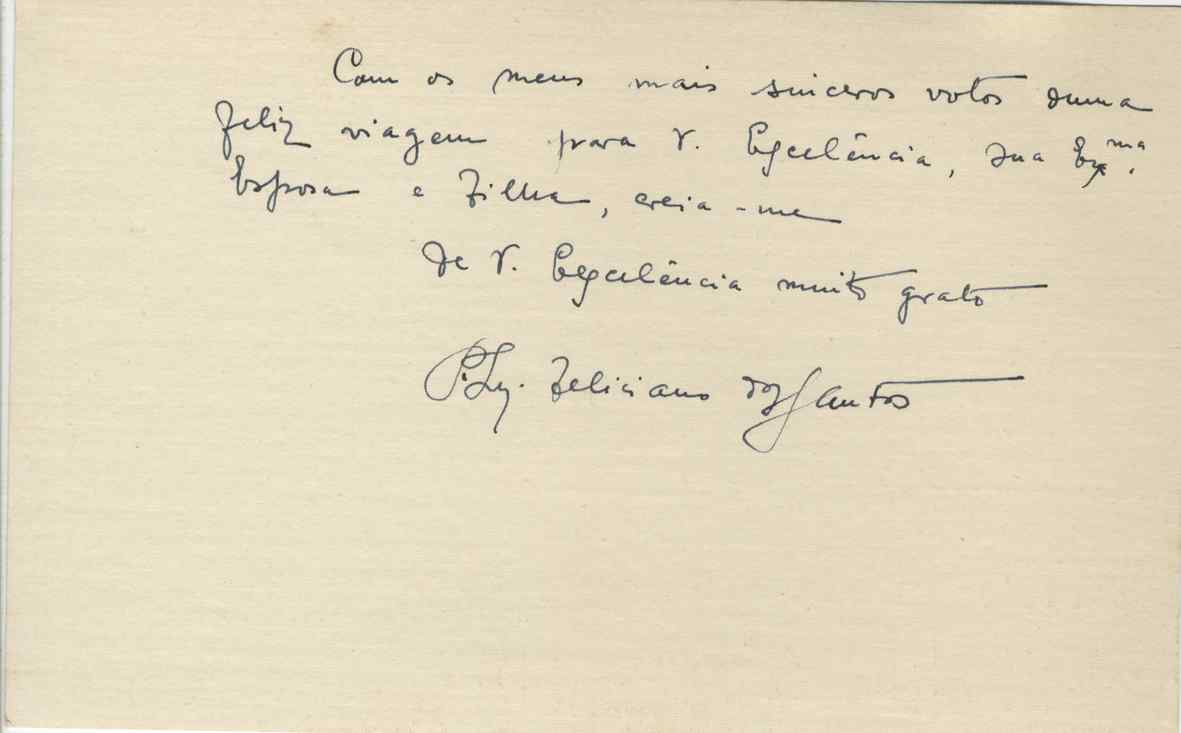 Com os meus mais sinceros votos duma
feliz viagem para V. Excelência, sua Ex.ma
Esposa e Filha, creia-me
de V. Excelência muito grato
Feliciano dos Santos